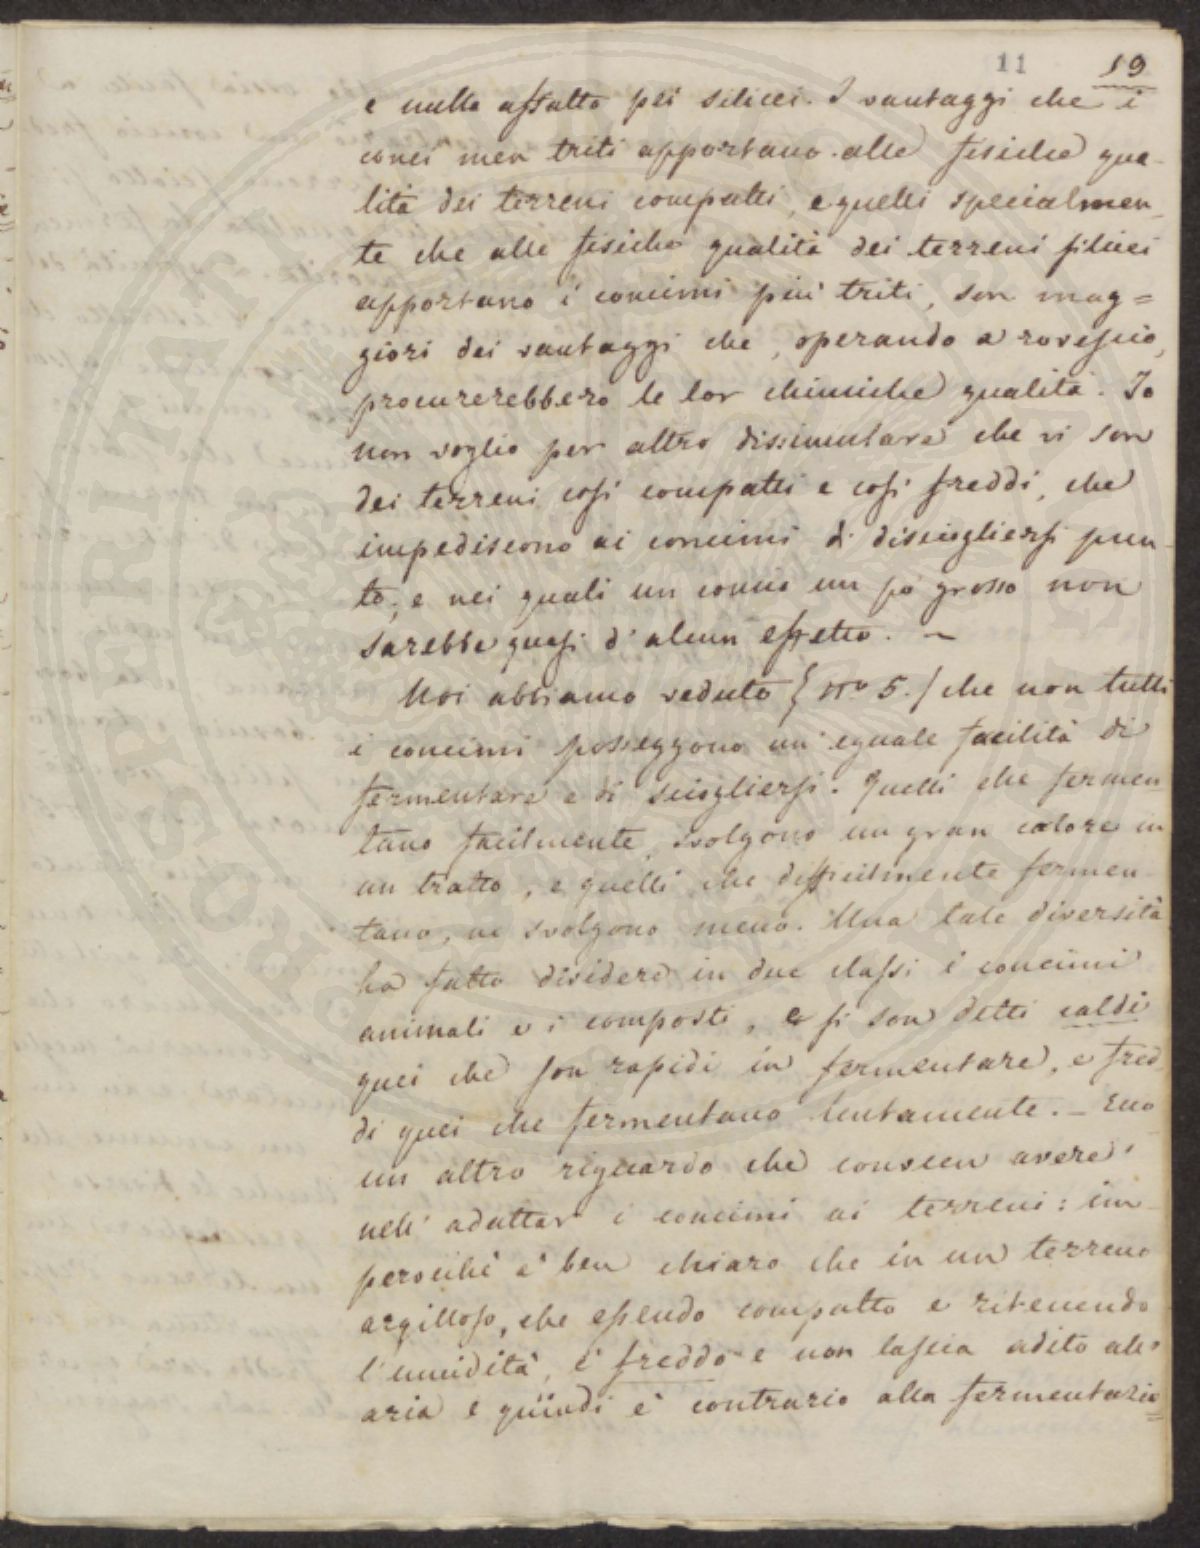 11 19
e nulla affatto pei silicei. I vantaggi che i
conci men triti apportano alle fisiche qua-
lità dei terreni compatti, e quelli specialmen-
te che alle fisiche qualità dei terreni silicei
apportano i concimi più triti, son mag=
giori dei vantaggi che, operando a rovescio,
procurerebbero le lor chimiche qualità. Io
non voglio per altro dissimulare che vi son
dei terreni così compatti e così freddi, che
impediscono ai concimi di disciogliersi pun-
to, e nei quali un concio un pò grosso non
sarebbe quasi d'alcun effetto. ~
Noi abbiamo veduto (n° 5.) che non tutti
i concimi posseggono un'eguale facilità di
fermentare e di sciogliersi. Quelli che fermen-
tano facilmente, svolgono un gran calore in
un tratto, e quelli che difficilmente fermen-
tano, ne svolgono meno. Una tale diversità
ha fatto dividere in due classi i concimi
animali e i composti, e si son detti caldi
quei che son rapidi in fermentare, e fred
di quei che fermentano lentamente. _ Ecco
un altro riguardo che convien avere
nell' adattar i concimi ai terreni: im-
perocchè è ben chiaro che in un terreno
argilloso, che essendo compatto e ritenendo
l'umidità, è freddo e non lascia adito all'
aria e quindi è contrario alla fermentazio=
PROSPERITATI